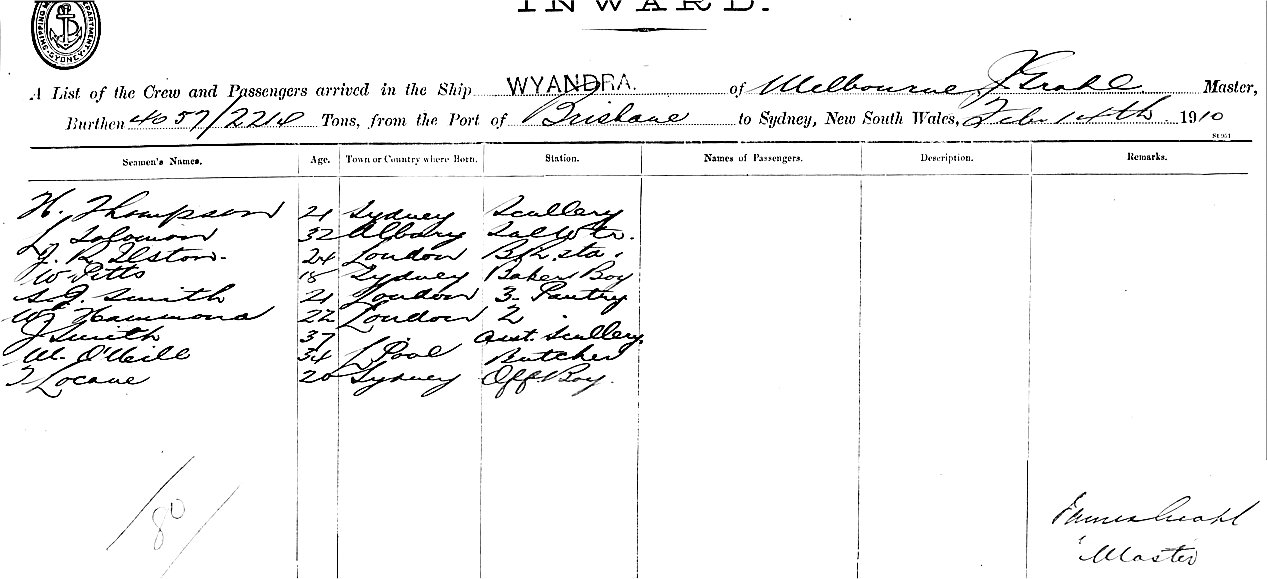 INWARD.
SHIPPING DEPARTMENT SYDNEY
A List of the Crew and Passengers arrived in the Ship WYANDRA. of Melbourne J Grahl Master,
Burthen 4057/2214 Tons, from the Port of Brisbane to Sydney, New South Wales, Feb 14th 1910
Seamen's Names. Age. Town or Country where Born. Station. Names of Passengers. Description. Remarks.
H. Thompson 21 Sydney Scullery
L Solomon 32 Albany Sal Wtr.
J. R. Elston. 24 London B.R. sta.
W Pitts 18 Sydney Baker Boy
S. J. Smith 21 London 3. Pantry
W Hammond 22 London 2 .
J Smith 37 asst. Scullery.
M. O'Neill 34 L'Pool Butcher
T Locane 20 Sydney Off Boy.
/80/
James Grahl
Master